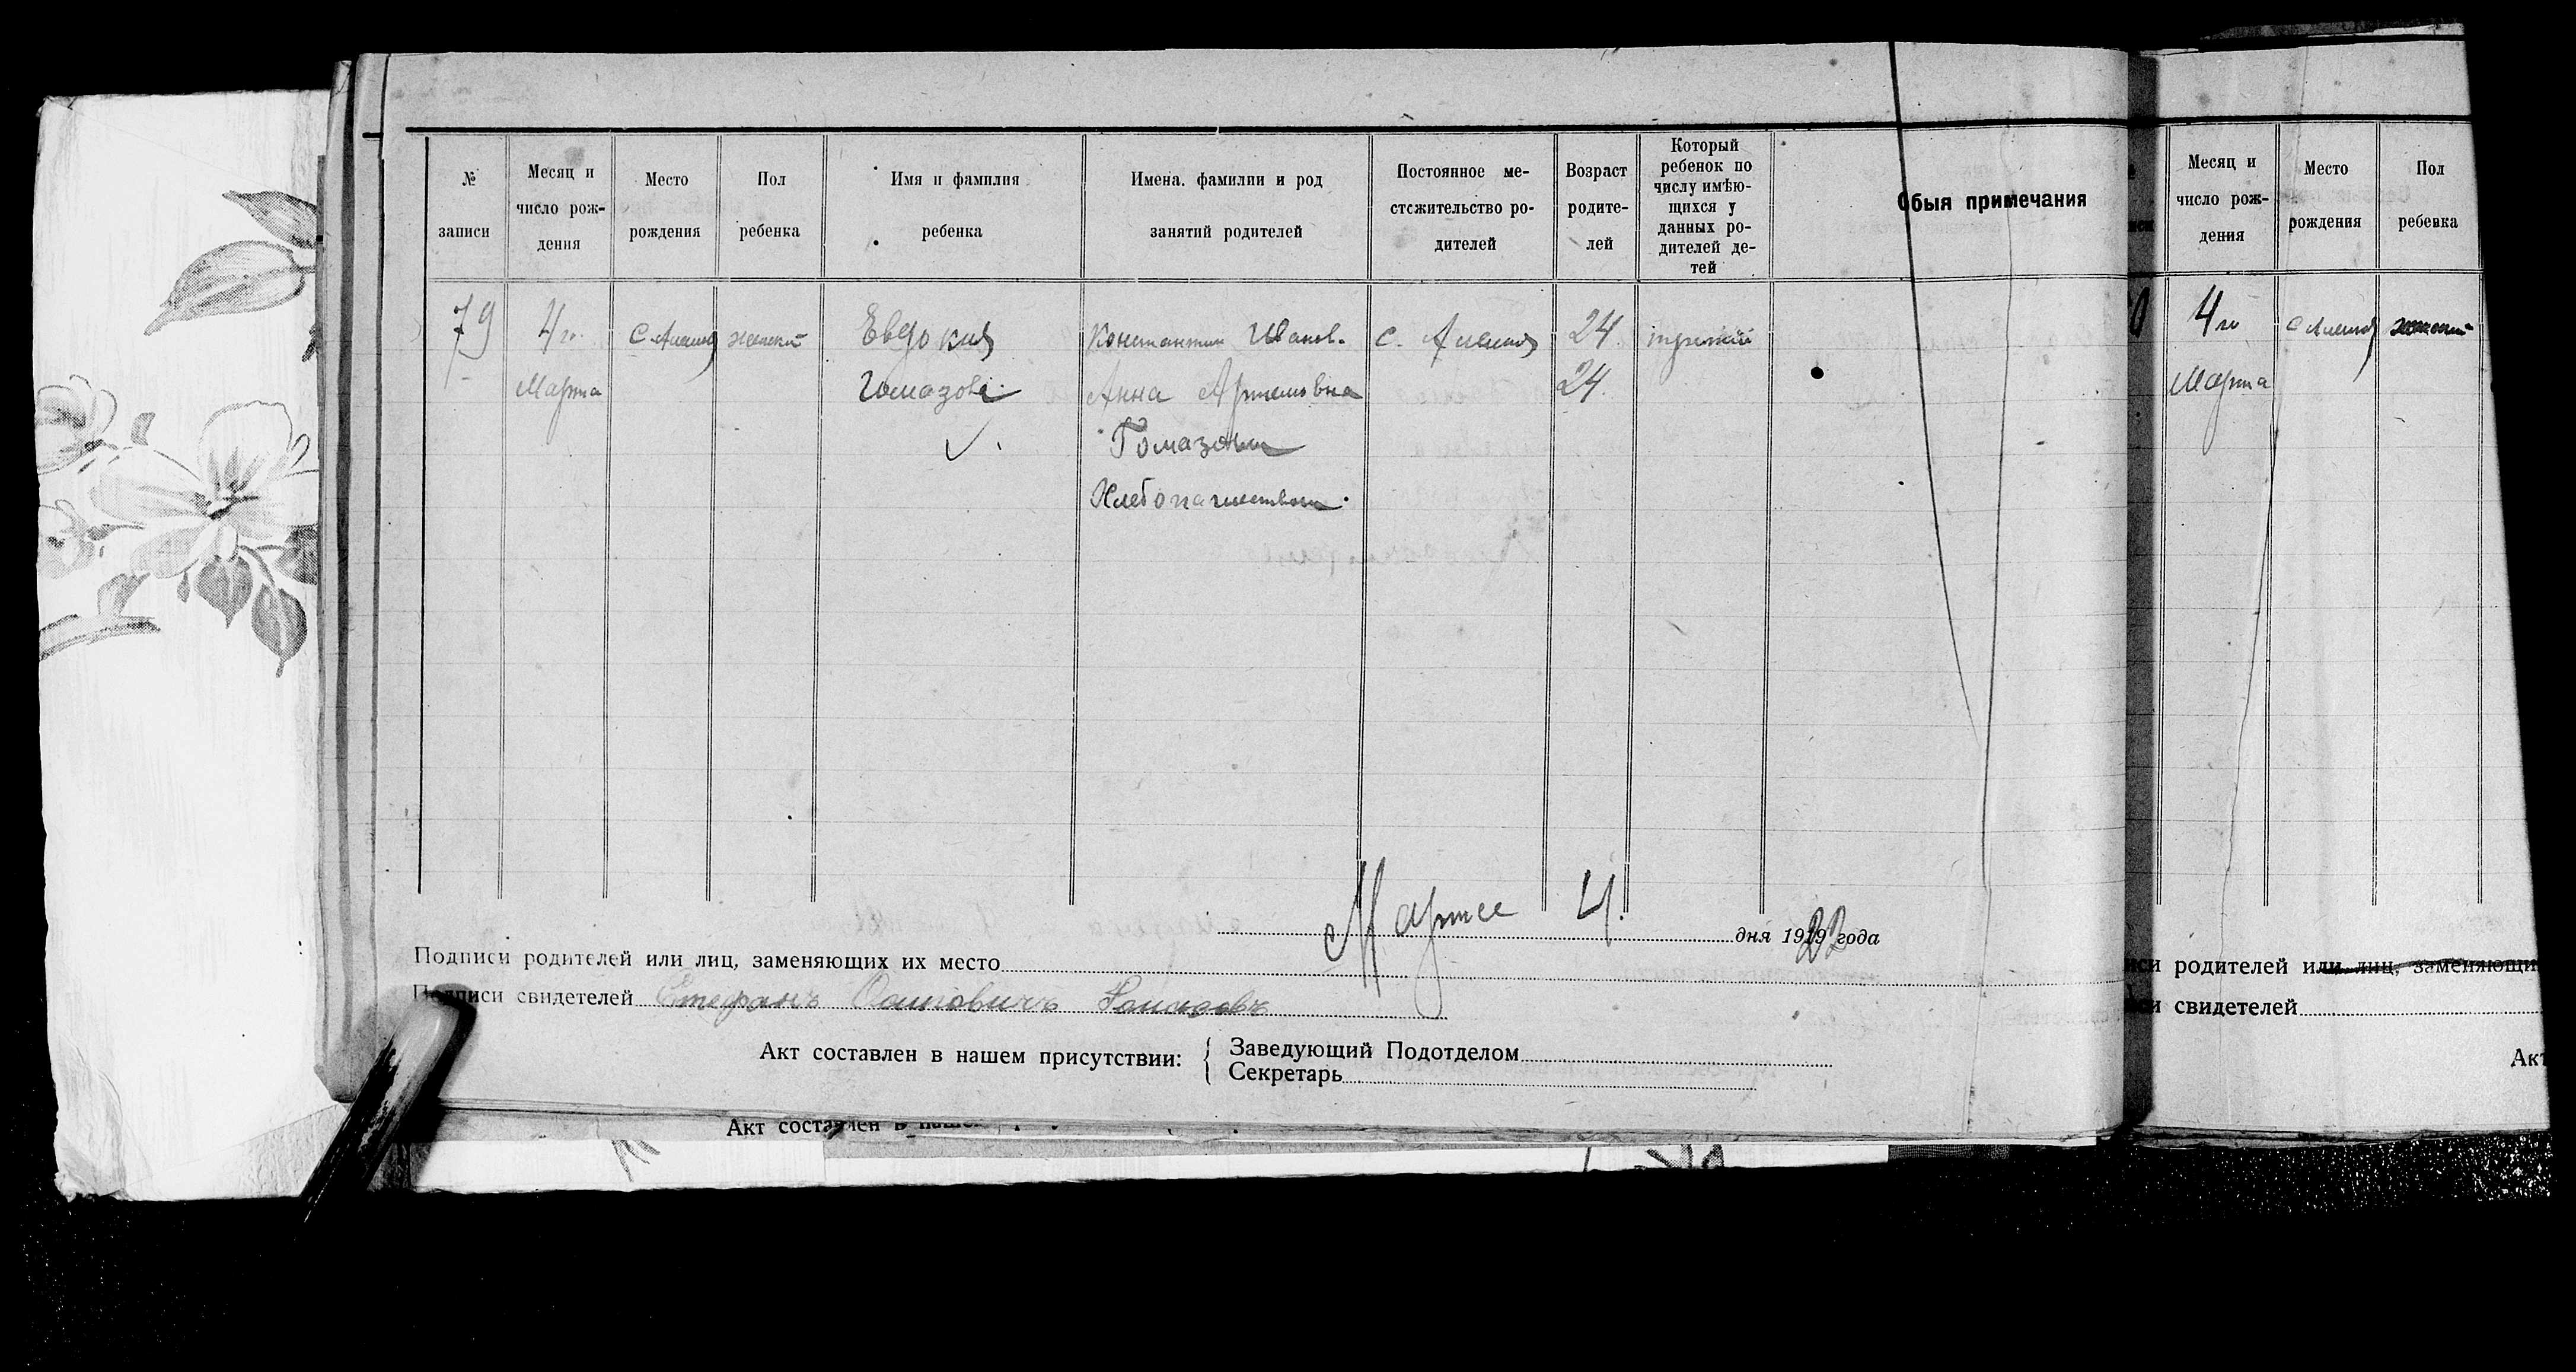 № записи
Месяц и число рождения
Место рождения
Пол ребенка
Имя и фамилия ребенка
Имена, фамилии и род занятий родителей
Постоянное местожительство родителей
Возраст родителей
Который ребенок по числу имѣющихся у данных родителей детей
Обыя примечания
79
4го Марта
женский
Евдокия
Константин Иванов.
Анна Артемовна
Гомазовы
Хлебопашеством
24
24
третий
Марта 4. дня 1922 года
Подписи родителей или лиц, заменяющих их место
Подписи свидетелей Стефанъ Гомазовъ
Акт составлен в нашем присутствии:
Заведующий Подотделом
Секретарь
Акт составлен в нашем
Месяц и число рождения
Место рождения
Пол ребенка
4го
Марта
женский
родителей или лиц, заменяющи
свидетелей
Акт